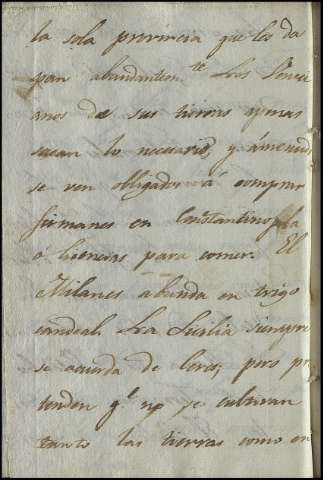 la sola provincia que les da
pan abundantem.te Los Veneci
anos de sus tierras apenas
sacan lo necesario, y ámenudo
se ven obligados á comprar
firmanes en Constantinopla
ó licencias para comer. El
Milanes abunda en trigo
candeal. La Sicilia siempre
se acuerda de Ceres; pero pre
tenden q.e no se cultivan
tanto las tierras como en